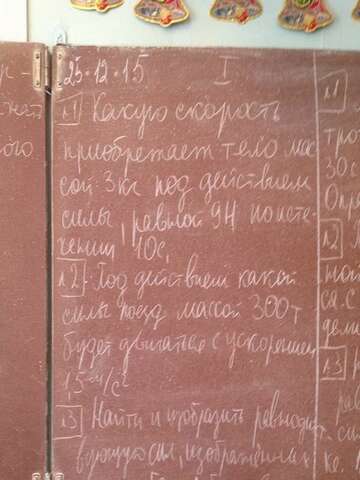 25.12.15 I
№1 Какую скорость
приобретает тело мас
сой 3кг под действием
силы, равной 9Н по исте-
чении 10с,
№2 Под действием какой
силы поезд массой 300т
будет двигаться с ускорением
1,5 м/с²
№3 Найти и изобразить равнодейст-
вующую сил, изображённых
№1
30с
№2
№3